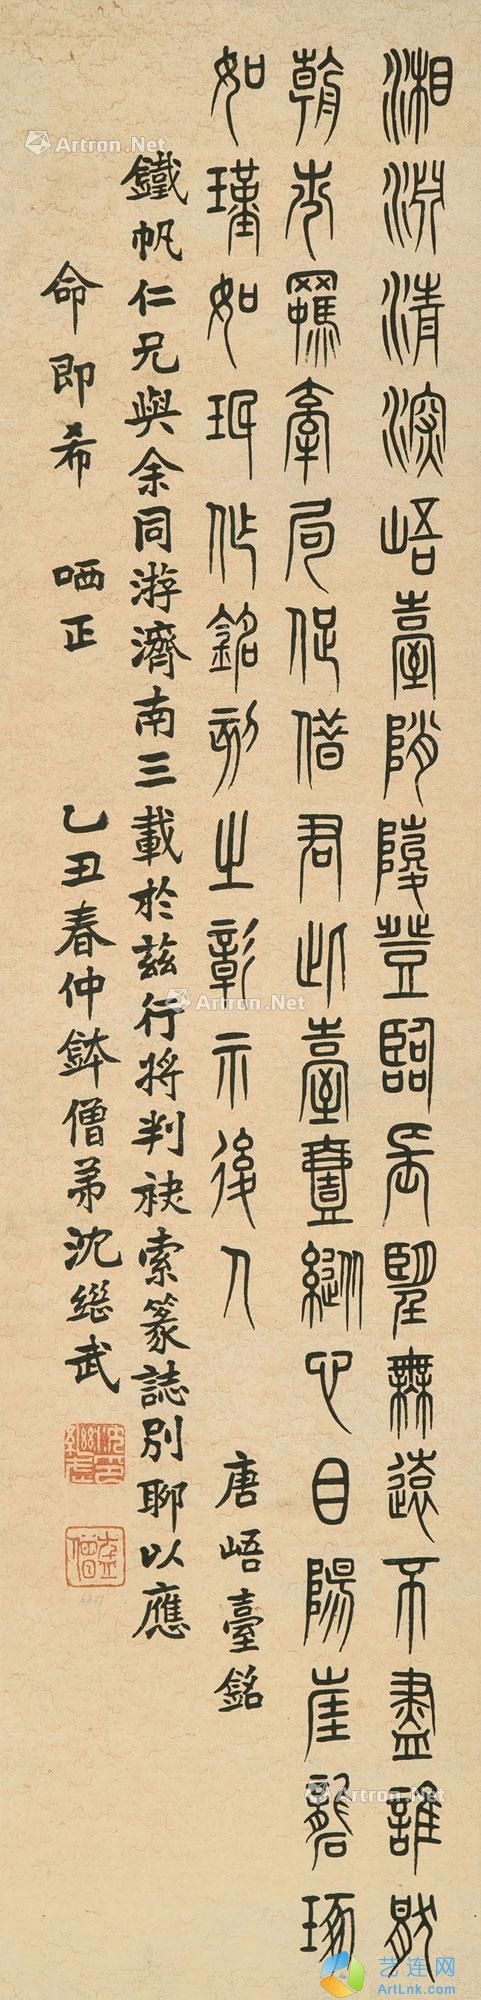 湘淵清深峿臺陗陵登臨長望無遠不盡誰厭
朝市羈牽局促借君此臺壹縱心目陽崖礱琢
如瑾如珉作銘刻之彰示後人
唐峿臺銘
鐵帆仁兄與余同游濟南三載於茲行將判袂索篆誌別聊以應
命即希 哂正
乙丑春仲鉢僧弟沈繼武
Artron.Net
Artron.Net
Artron.Net
Artron.Net
Artron.Net
Artron.Net
艺连网
ArtLnk.com